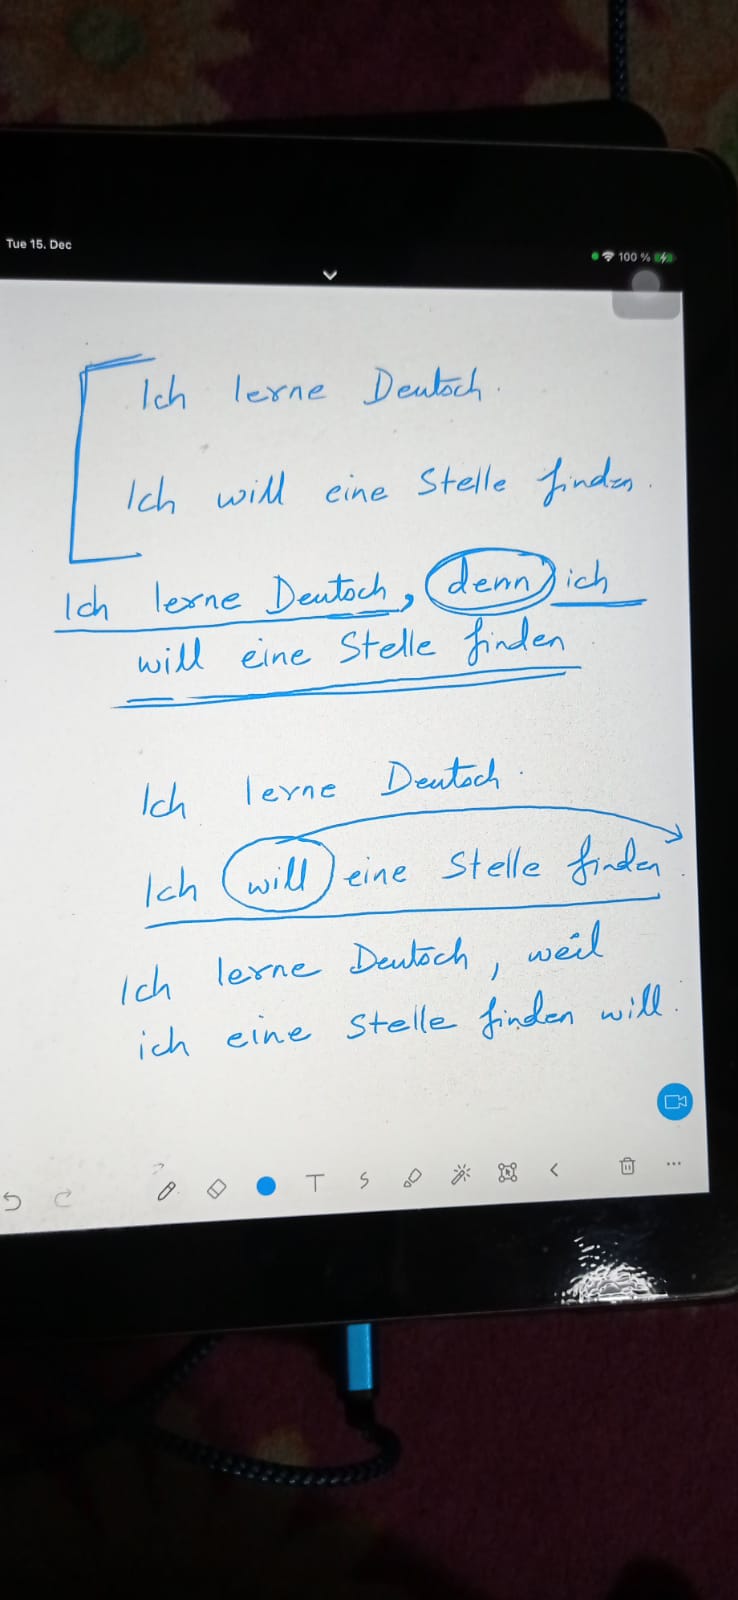 Tue 15. Dec
100 %
Ich lerne Deutsch.
Ich will eine Stelle finden.
Ich lerne Deutsch, denn ich
will eine Stelle finden
Ich lerne Deutsch.
Ich will eine Stelle finden.
Ich lerne Deutsch, weil
ich eine Stelle finden will.
T